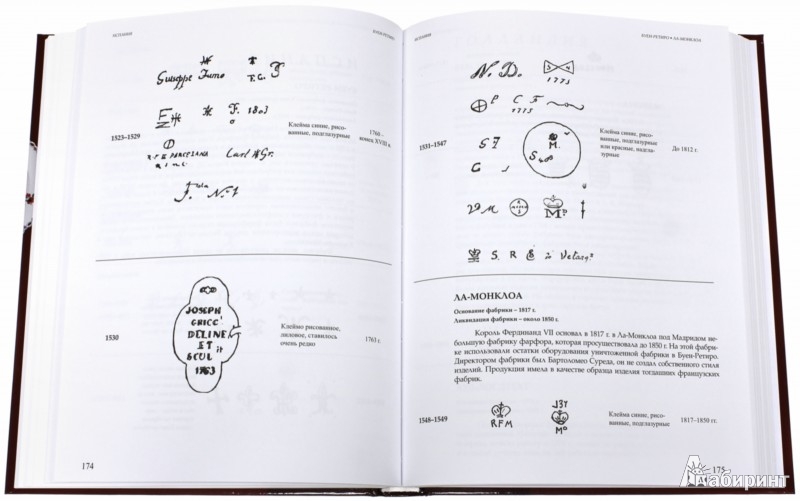 ИСПАНИЯ
БУЕН-РЕТИРО
Giuseppe Fumo
F. G.
F. 1803
1523–1529
1760 –
конец XVIII в.
Carl
1530
JOSEPH
GRICC'
DELINE
ET
SCUL
1763
Клеймо рисованное,
лиловое, ставилось
очень редко
1763 г.
174
ИСПАНИЯ
БУЕН-РЕТИРО • ЛА-МОНКЛОА
N. D.
1775
P
C F
1531–1547
M.
Клейма синие, рисо-
ванные, подглазурные
или красные, надгла-
зурные
До 1812 г.
S. R
ЛА-МОНКЛОА
Основание фабрики – 1817 г.
Ликвидация фабрики – около 1850 г.
Король Фердинанд VII основал в 1817 г. в Ла-Монклоа под Мадридом не-
большую фабрику фарфора, которая просуществовала до 1850 г. На этой фабри-
ке использовали остатки оборудования уничтоженной фабрики в Буен-Ретиро.
Директором фабрики был Бартоломео Суреда, он не создал собственного стиля
изделий. Продукция имела в качестве образца изделия тогдашних французских
фабрик.
1548–1549
RFM
Mº
Клейма синие, рисо-
ванные, подглазурные
1817–1850 гг.
175
Лабиринт